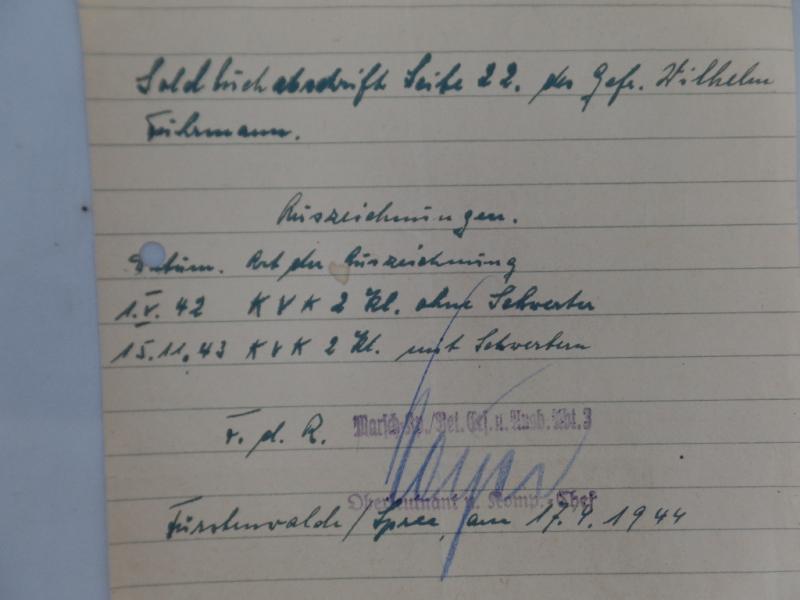 Soldbuchabschrift Seite 22. des Gefr. Wilhelm
Fuhrmann.
Auszeichnungen.
Datum. Art der Auszeichnung
1.V.42 K V K 2 Kl. ohne Schwerter
15.11.43 K V K 2 Kl. mit Schwertern
F. d. R.
Marsch-Kp./Vet. Ers. u. Ausb. Abt. 3
Oberleutnant u. Komp.-Chef
Fürstenwalde/Spree, am 17.4.1944